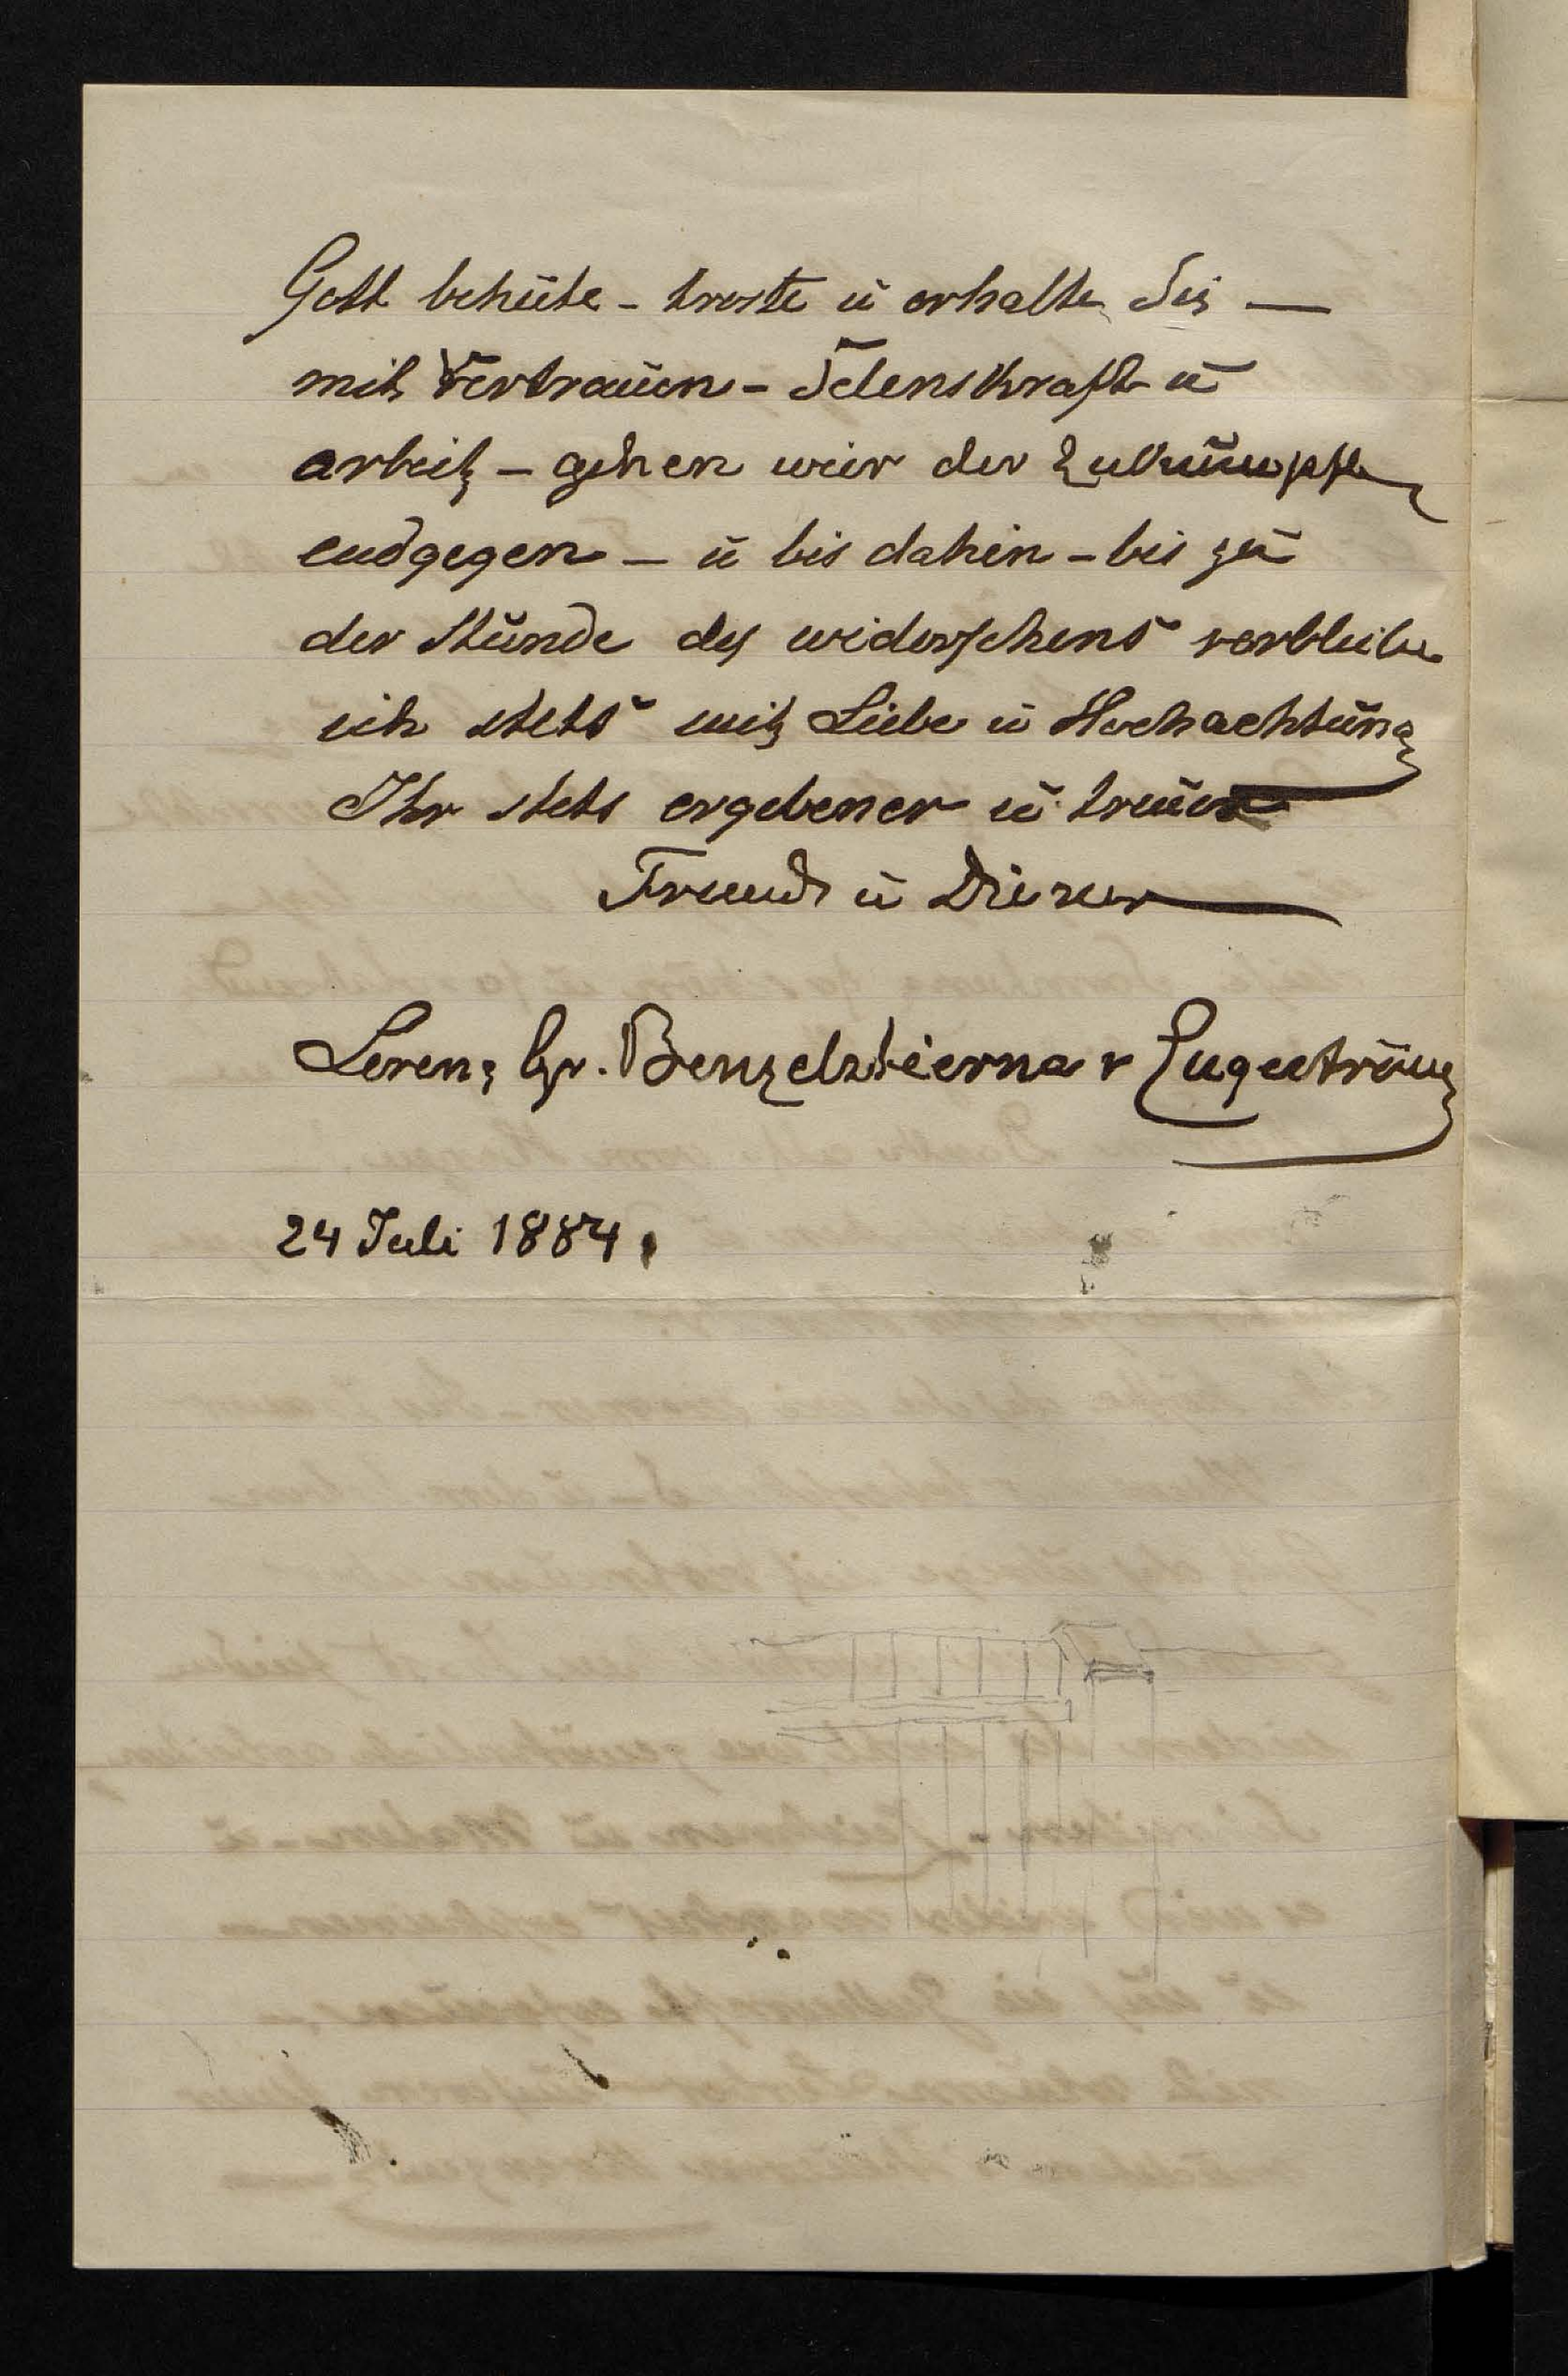 Gott behüte - troste ü erhalte Sie —
mit Vertrauen - Selenskraft ü
arbeit - gehen wier der Zukuumpft
endgegen - ü bis dahin - bis zu
der Stunde des widersehens verbleibe
ich stets mit Liebe ü Hochachtung
Ihr stets ergebener ü treuer
Freund ü Diener
Lorenz Gr. Benzelstierna v Engeström
24 Juli 1884.